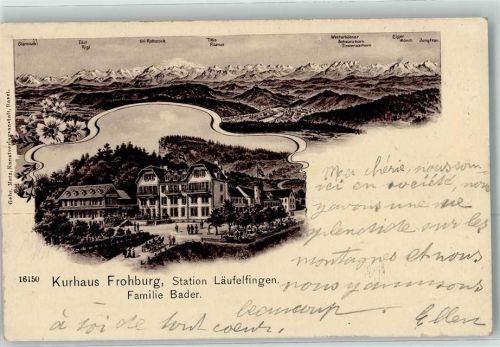 Glärnisch
Rigi
Uri-Rotstock
Titlis
Wetterhörner
Schreckhorn
Finsteraarhorn
Eiger
Mönch
Jungfrau
Gebr. Metz, Kunstverlagsanstalt, Basel.
Ma chérie, nous som-
ici en société, nous
y avons une vue
splendide sur les
montagnes et nous
nous y amusons
beaucoup. Ellen
à toi de tout coeur.
16150 Kurhaus Frohburg, Station Läufelfingen.
Familie Bader.